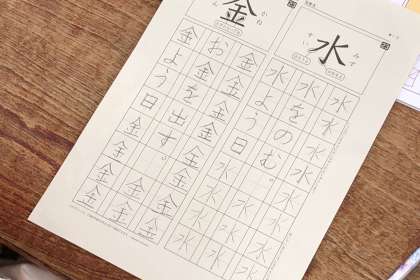 水
みず
すい
水水水水水水水水
水をのむ。水水水
水よう日水水水水
金
かね
金金金金金金金金
お金を出す。金金
金よう日金金金金